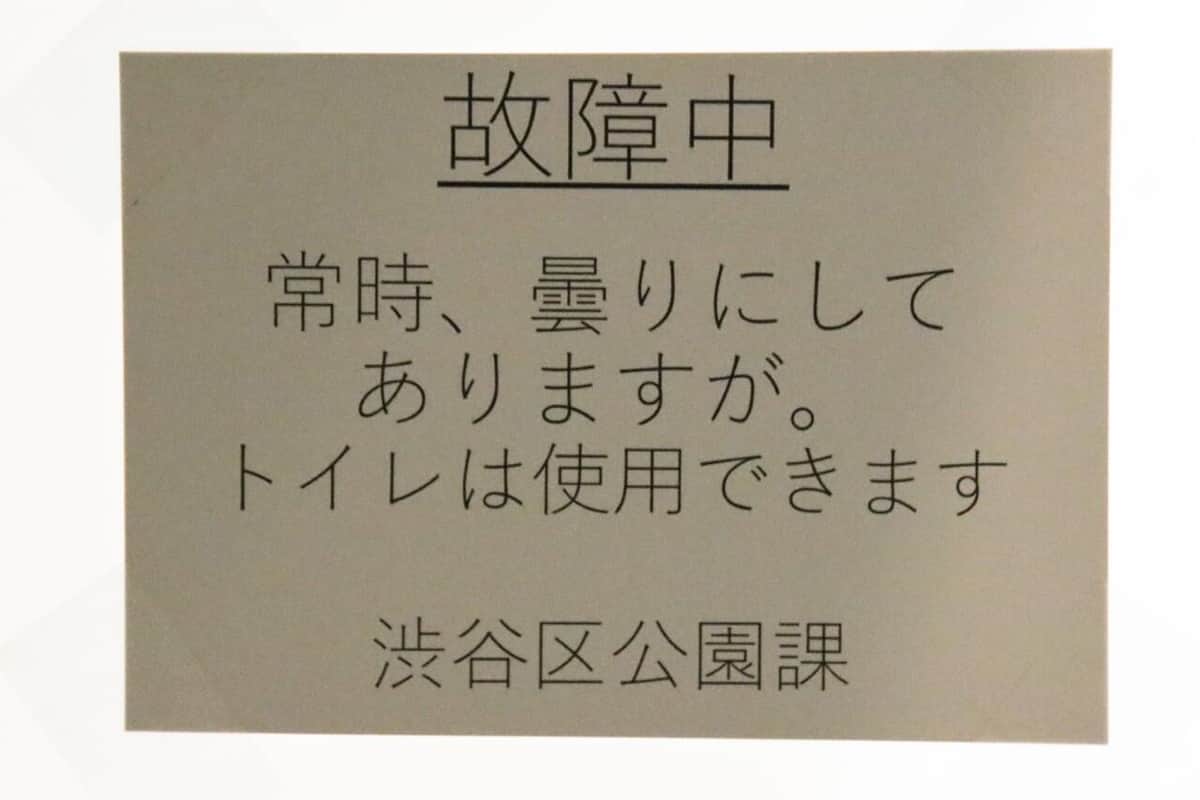 故障中
常時、曇りにして
ありますが。
トイレは使用できます
渋谷区公園課